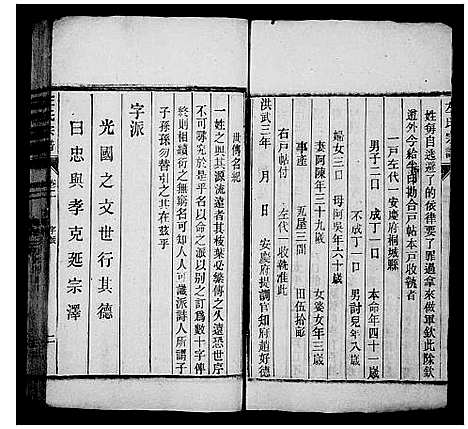 左氏宗譜
姓每自逃避了的依律要了罪過拿來做軍欽此除欽
遵外今給半印勘合戶帖本戶收執者
一戶左代一安慶府桐城縣
男子二口　成丁一口　本命年四十一歲
不成丁一口　男討兒年八歲
婦女三口　母阿吳年六十歲
妻阿陳年三十九歲　女婆女年三歲
事產　瓦屋三間　田伍拾畝
右戶帖付　左代一收執准此
洪武三年　月　日　安慶府提調官知府趙好德
世傳名紀
一姓之興其源流遠者其枝葉必繁傳之久遠恐世序
不可得而考究於是乎名以命之派以別之訂為數十字俾
終則相續衍之無窮名可知卽人人可識派詩人所謂子
子孫孫勿替引之其在茲乎
字派
光國之文世行其德
曰忠與孝克延宗澤